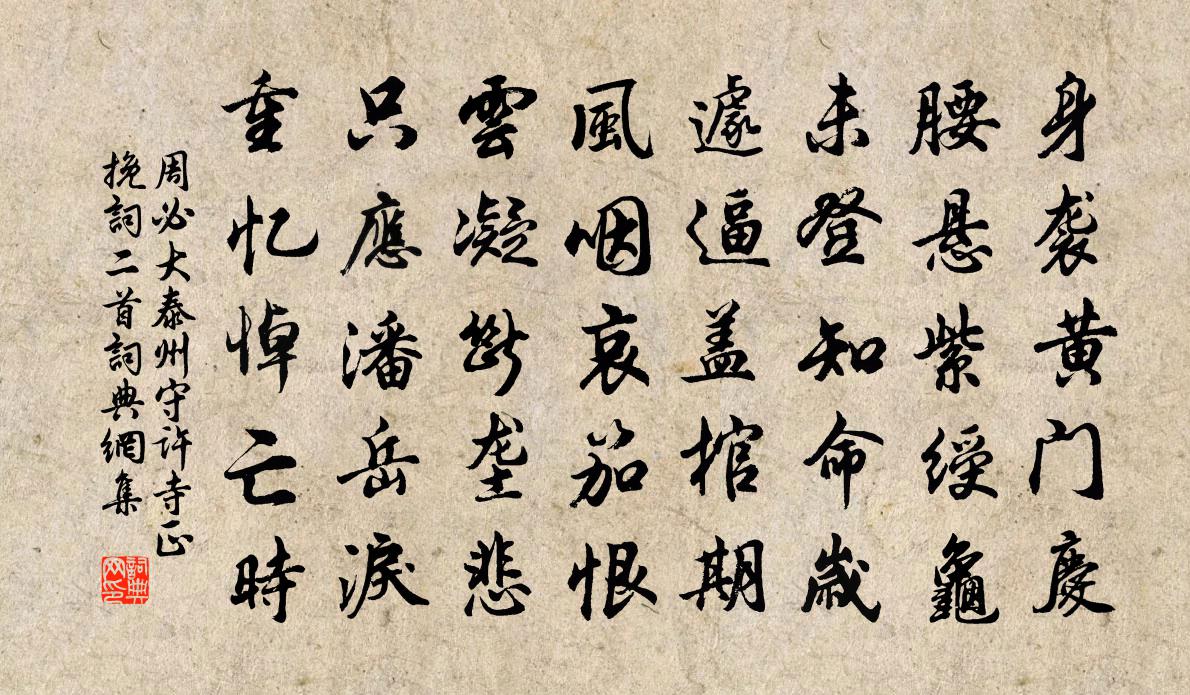 身袭黄门庆
腰悬紫綬龜
未登知命歲
遽逼盖棺期
風咽哀笳恨
雲凝断垄悲
只應潘岳淚
重忆悼亡時
周必大泰州守許寺正
挽詞二首詞典網集
詞典網印